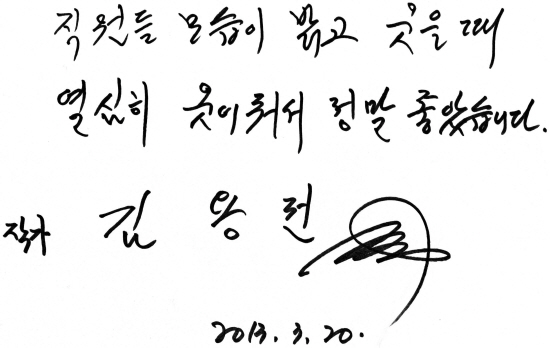 직원들 모습이 밝고 웃을 때
열심히 웃어줘서 정말 좋았습니다.
작가 김용전
2013. 3. 20.